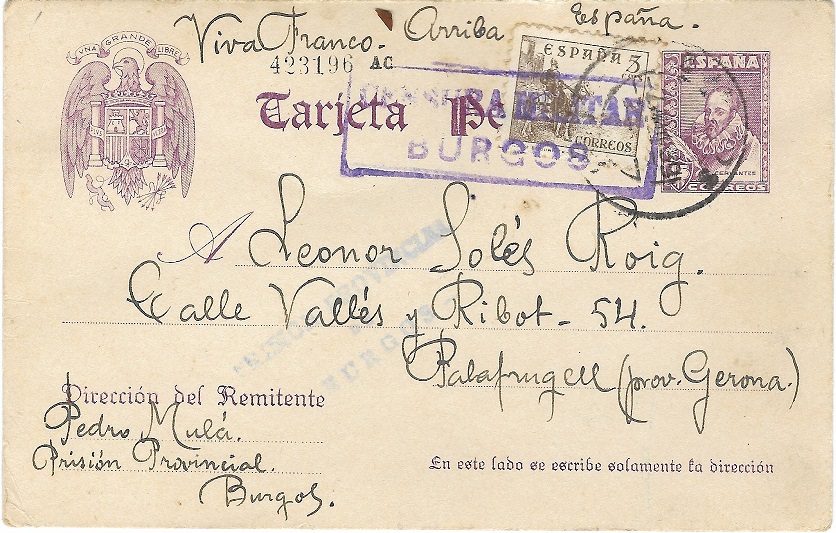 Viva Franco. Arriba España.
VNA GRANDE LIBRE
423196 AC
Tarjeta
ESPAÑA 5 CTS
CORREOS
ESPAÑA
CERVANTES
CORREOS
CENSURA MILITAR
BURGOS
A Leonor Solés Roig.
Calle Vallés y Ribot - 54.
Palafrugell (prov. Gerona.)
PRISION PROVINCIAL
BURGOS
Dirección del Remitente
Pedro Mulá.
Prisión Provincial.
Burgos.
En este lado se escribe solamente la dirección